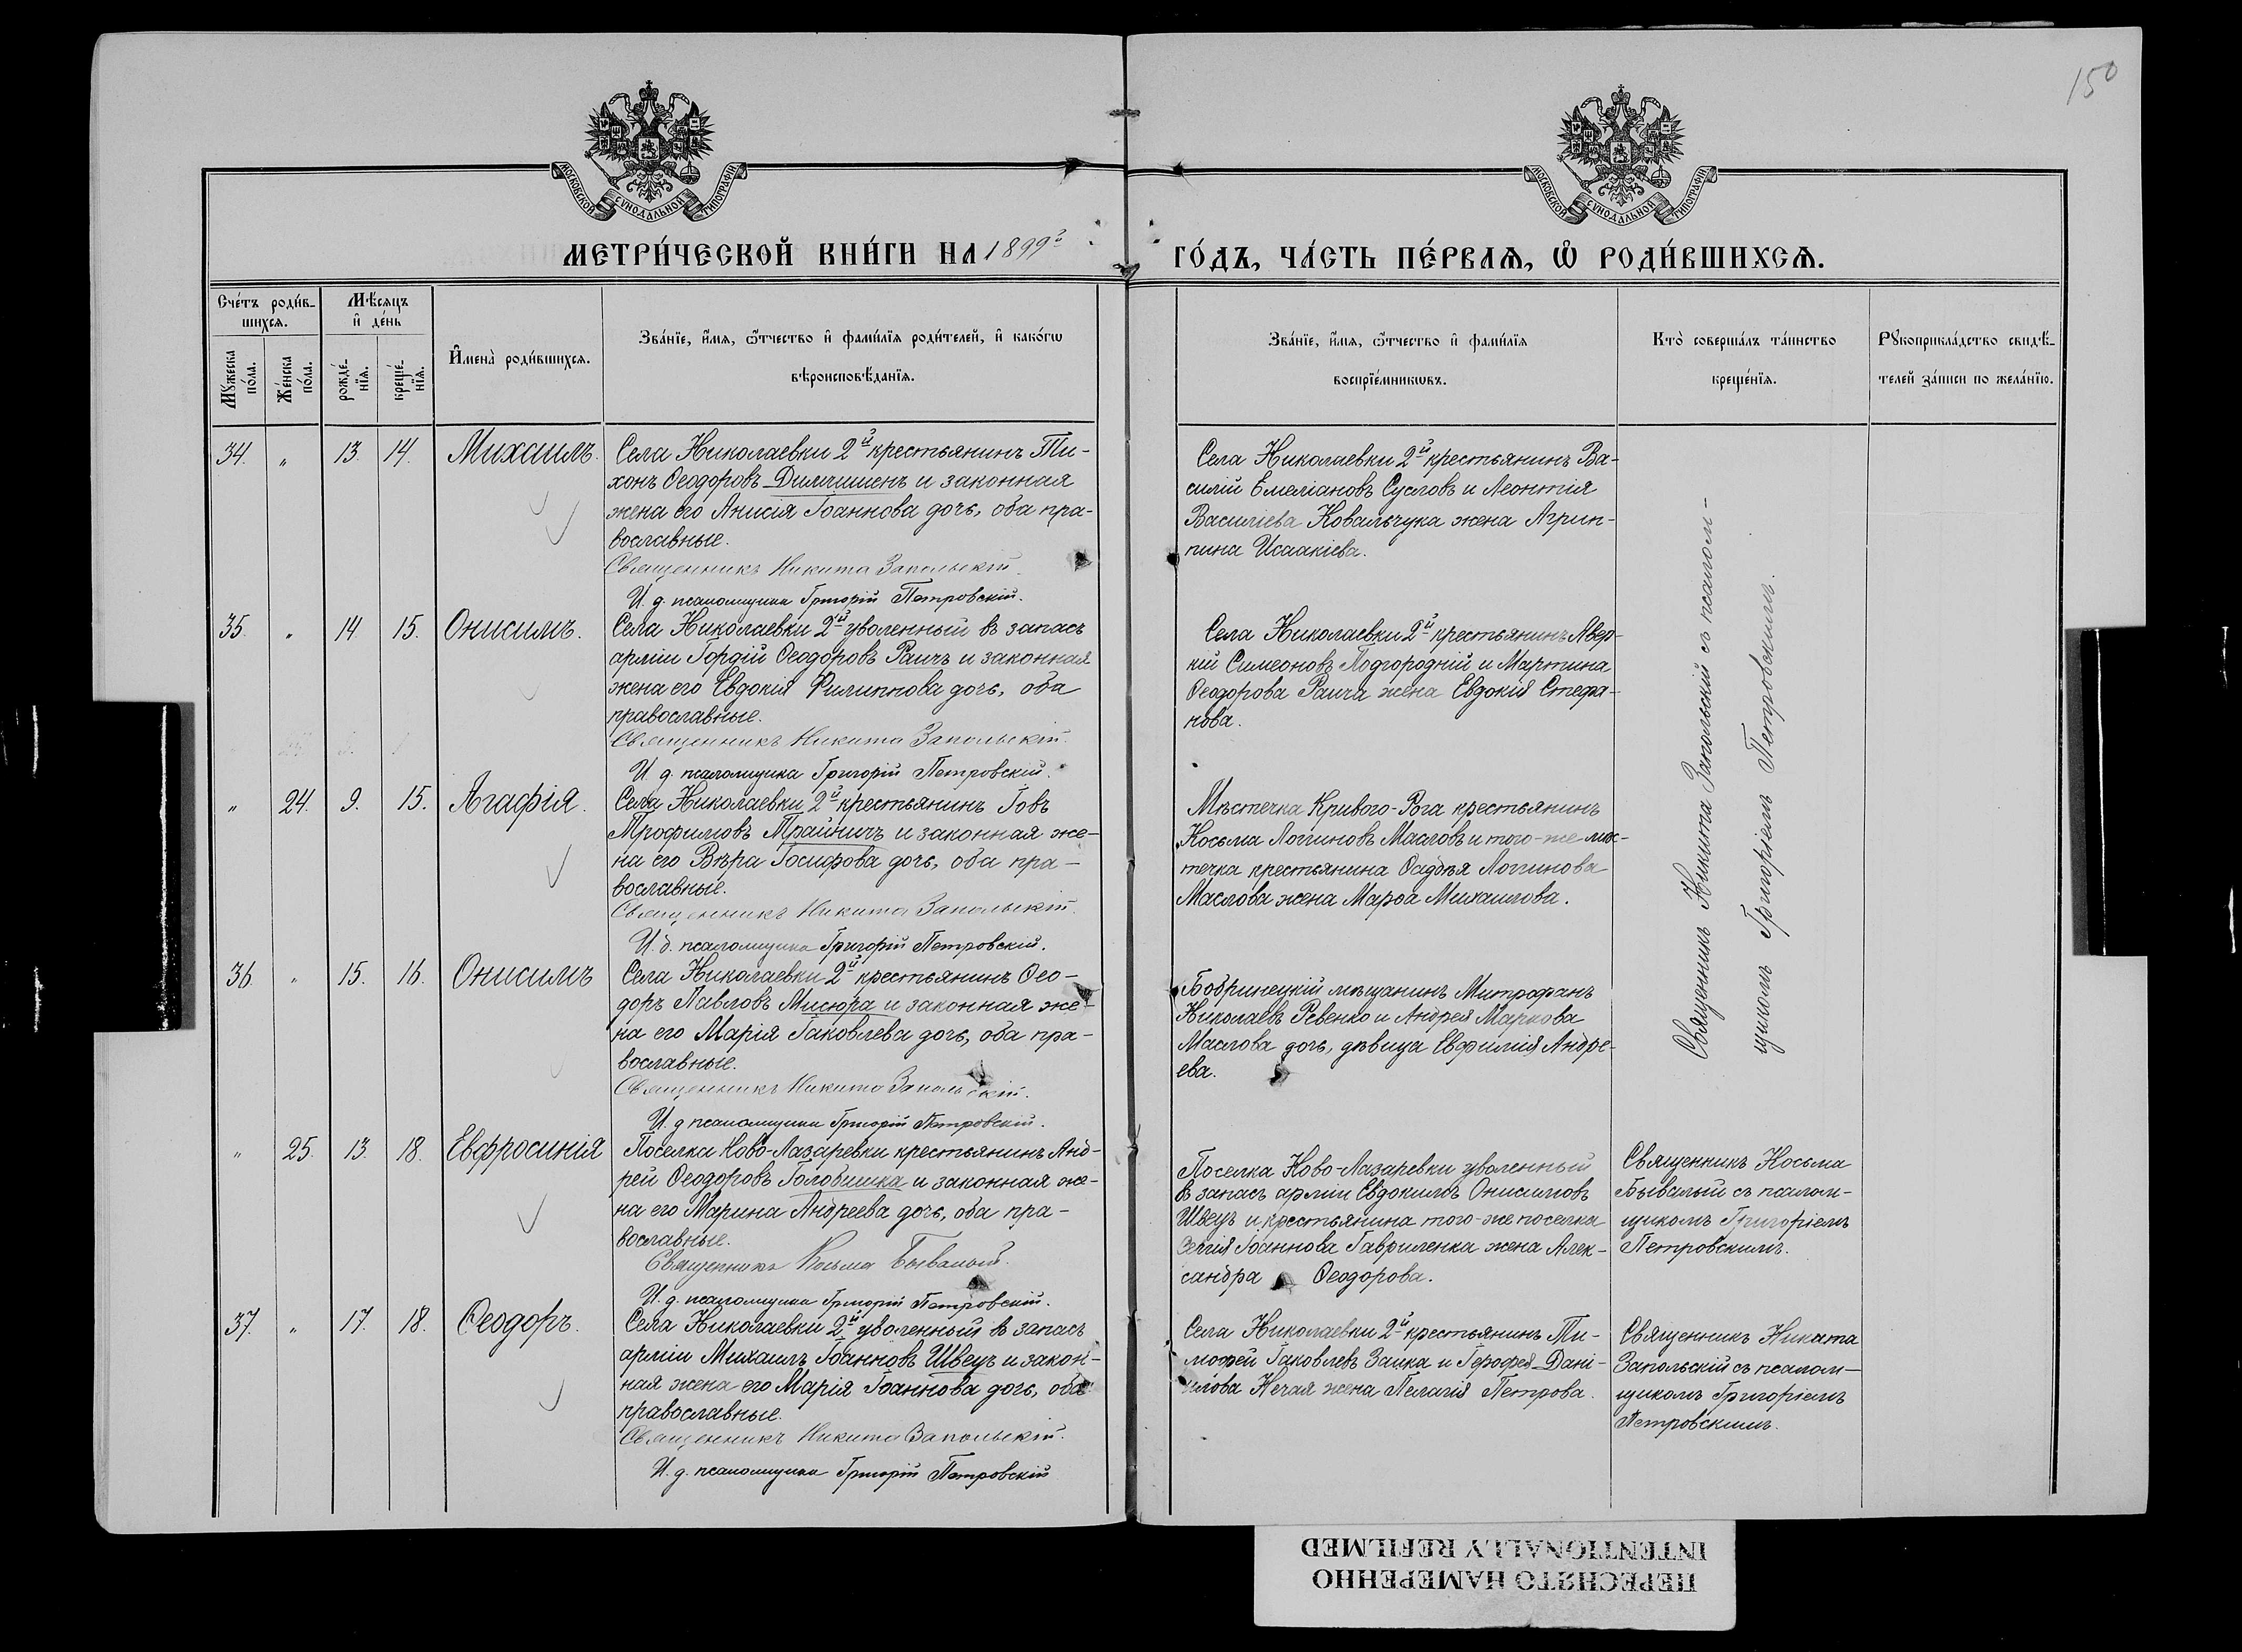 150
МОСКОВСКОЙ СѴНОДАЛЬНОЙ ТИПОГРАФІИ.
МОСКОВСКОЙ СѴНОДАЛЬНОЙ ТИПОГРАФІИ.
МЕТРИ́ЧЕСКОЙ КНИ́ГИ НА 1899й
ГО́ДЪ, ЧА́СТЬ ПЕ́РВАѦ, Ѡ҆ РОДИ́ВШИХСѦ.
Сче́тъ роди́в-
шихсѧ.
Мѣ́сѧцъ
и҆ де́нь
Мꙋ́жеска
по́ла.
Же́нска
по́ла.
рожде́-
нїѧ.
креще́-
нїѧ.
И҆мена̀ роди́вшихсѧ.
Зва́нїе, и҆́мѧ, ѻ҆́тчество и҆ фами́лїѧ роди́телей, и҆ како́гѡ
вѣроисповѣ́данїѧ.
Зва́нїе, и҆́мѧ, ѻ҆́тчество и҆ фами́лїѧ
воспрїе́мникѡвъ.
Кто̀ соверша́лъ та́инство
креще́нїѧ.
Рꙋкоприкла́дство свидѣ́-
телей за́писи по жела́нїю.
34. " 13. 14. Михаилъ.
Села Николаевки 2й крестьянинъ Ти-
хонъ Ѳеодоровъ Димчишенъ и законная
жена его Анисія Іоаннова дочь, оба пра-
вославные.
Священникъ Никита Запольскій
И. д. псаломщика Григорій Петровскій.
Села Николаевки 2й крестьянинъ Ва-
силій Емеліановъ Сусловъ и Леонтія
Василіева Ковальчука жена Агрип-
пина Исаакіева.
35. " 14 15. Онисимъ.
Села Николаевки 2й уволенный въ запасъ
арміи Гордій Ѳеодоровъ Раичъ и законная
жена его Евдокія Филиппова дочь, оба
православные.
Священникъ Никита Запольскій.
И. д. псаломщика Григорій Петровскій.
Села Николаевки 2й крестьянинъ Авер-
кій Симеоновъ Подгородній и Мартина
Ѳеодорова Раича жена Евдокія Стефа-
нова.
" 24. 9. 15. Агафія.
Села Николаевки 2й крестьянинъ Іовъ
Трофимовъ Трайничъ и законная же-
на его Вѣра Іосифова дочь, оба пра-
вославные.
Священникъ Никита Запольскій.
И. д. псаломщика Григорій Петровскій.
Мѣстечка Кривого-Рога крестьянинъ
Косьма Логгиновъ Масловъ и того-же мѣс-
течка крестьянина Ѳаддѣя Логгинова
Маслова жена Марѳа Михаилова.
36. " 15. 16. Онисимъ
Села Николаевки 2й крестьянинъ Ѳео-
доръ Павловъ Мисюра и законная же-
на его Марія Іаковлева дочь, оба пра-
вославные.
Священникъ Никита Запольскій.
И. д псаломщика Григорій Петровскій.
Бобринецкій мѣщанинъ Митрофанъ
Николаевъ Ревенко и Андрея Маркова
Маслова дочь, дѣвица Евфимія Андре-
ева.
Священникъ Никита Запольскій съ псалом-
щикомъ Григоріемъ Петровскимъ.
" 25. 13. 18. Евфросинія
Поселка Ново-Лазаревки крестьянинъ Анд-
рей Ѳеодоровъ Голобишка и законная же-
на его Марина Андреева дочь, оба пра-
вославные.
Священникъ Косьма Бывалый.
И. д. псаломщика Григорій Петровскій.
Поселка Ново-Лазаревки уволенный
въ запасъ арміи Евдокимъ Онисимовъ
Швецъ и крестьянина того-же поселка
Сергія Іоаннова Гавриленка жена Алек-
сандра Ѳеодорова.
Священникъ Косьма
Бывалый съ псалом-
щикомъ Григоріемъ
Петровскимъ.
37. " 17. 18. Ѳеодоръ.
Села Николаевки 2й уволенный въ запасъ
арміи Михаилъ Іоанновъ Швецъ и закон-
ная жена его Марія Іоаннова дочь, оба
православные.
Священникъ Никита Запольскій.
И. д. псаломщика Григорій Петровскій
Села Николаевки 2й крестьянинъ Ти-
моѳей Іаковлевъ Заика и Іероѳея Дані-
илова Нечая жена Пелагія Петрова.
Священникъ Никита
Запольскій съ псалом-
щикомъ Григоріемъ
Петровскимъ.
ПЕРЕСНЯТО НАМЕРЕННО
INTENTIONALLY REFILMED